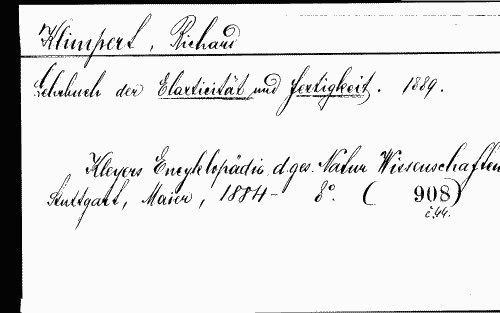 Klimpert, Richard
Lehrbuch der Elasticität und Festigkeit. 1889.
Kleyers Encyklopädie d. ges. Natur Wissenschaften
Stuttgart, Maier, 1884- 8°. ( 908)
č.44.